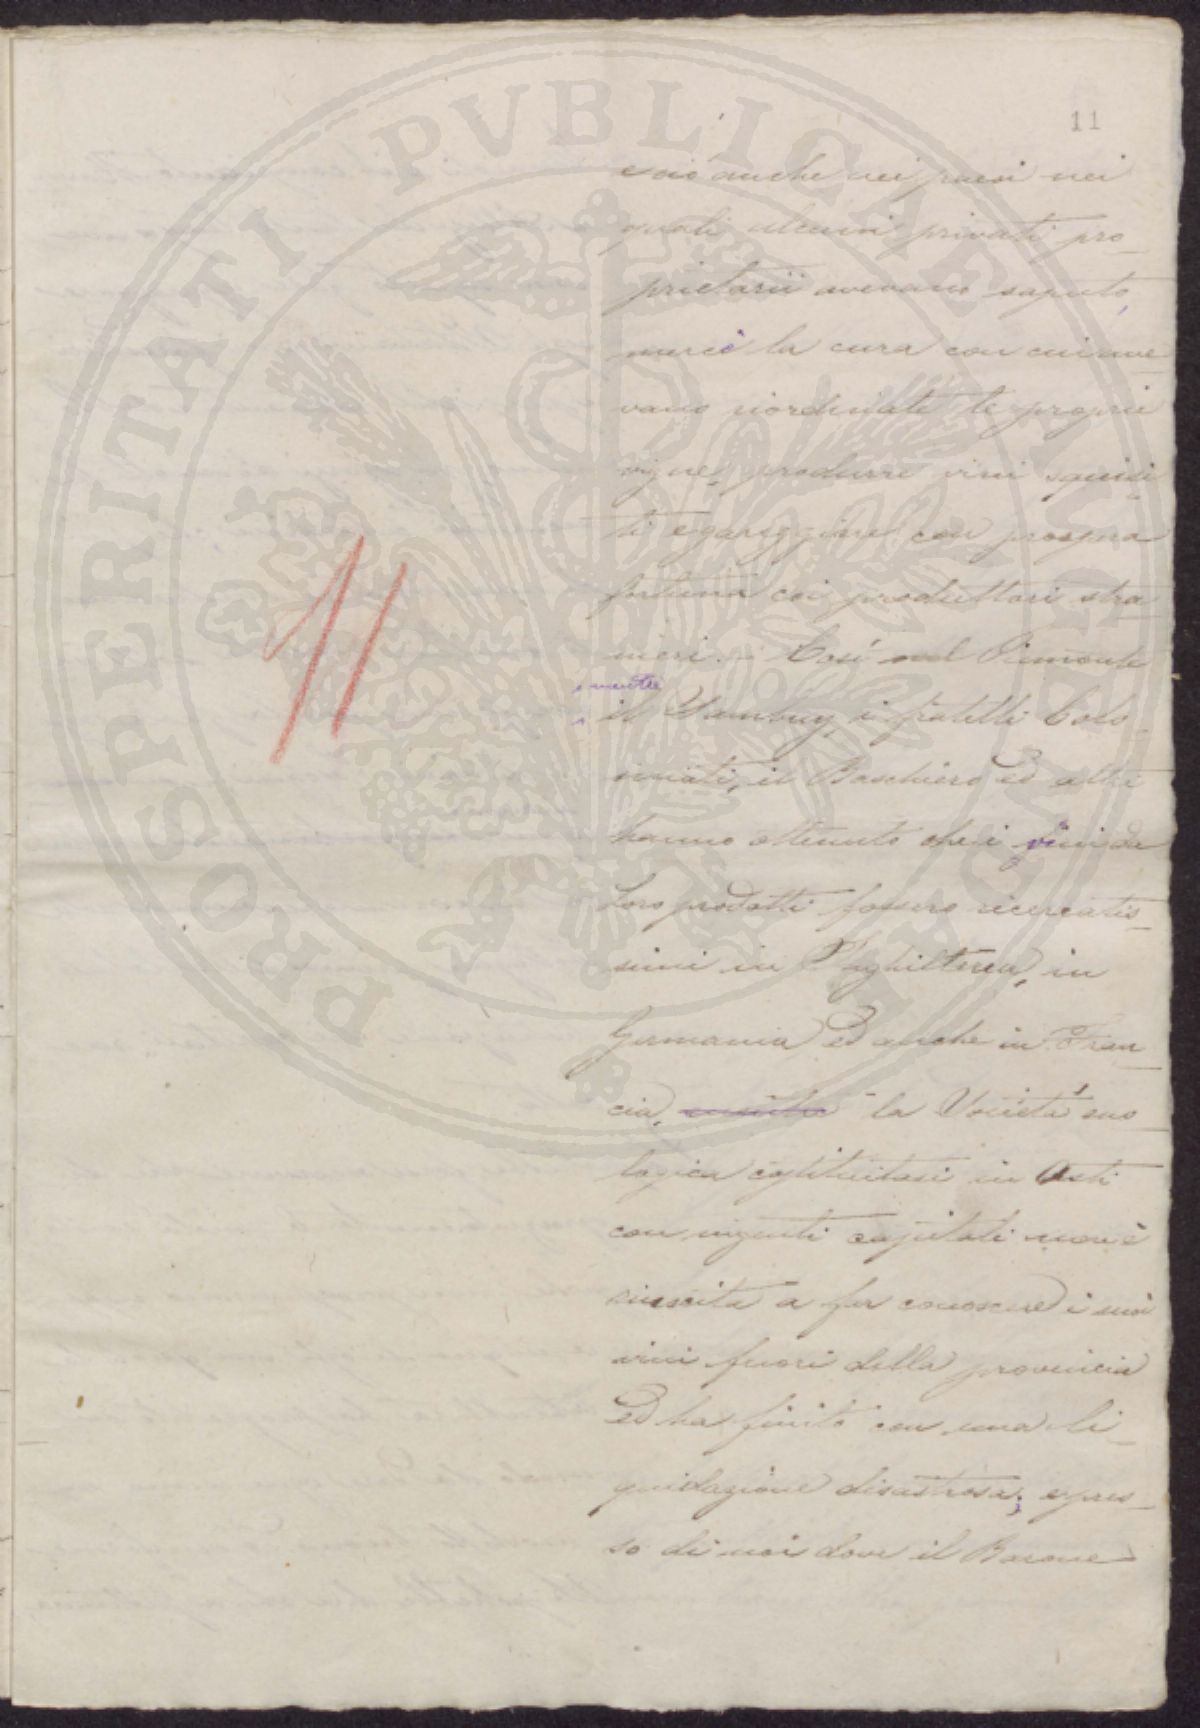 11
e ciò anche nei paesi nei
quali alcuni privati pro-
prietarii avevano saputo,
mercè la cura con cui ave
vano riordinate le proprie
vigne, produrre vini squisi
ti e gareggiare con prospera
fortuna coi produttori stra
nieri. Così nel Piemonte
mentre
il Sambuy, i fratelli Colo
miati, il Boschiero ed altri
hanno ottenuto che i vini da
loro prodotti fossero ricercatis-
simi in Inghilterra, in
Germania ed anche in Fran-
cia, mentre la Società eno
logica costituitasi in Asti
con ingenti capitali non è
riuscita a far conoscere i suoi
vini fuori della provincia
ed ha finito con una li-
quidazione disastrosa; e pres-
so di noi dove il Barone
11
PROSPERITATI PVBLICAE AVGENDAE